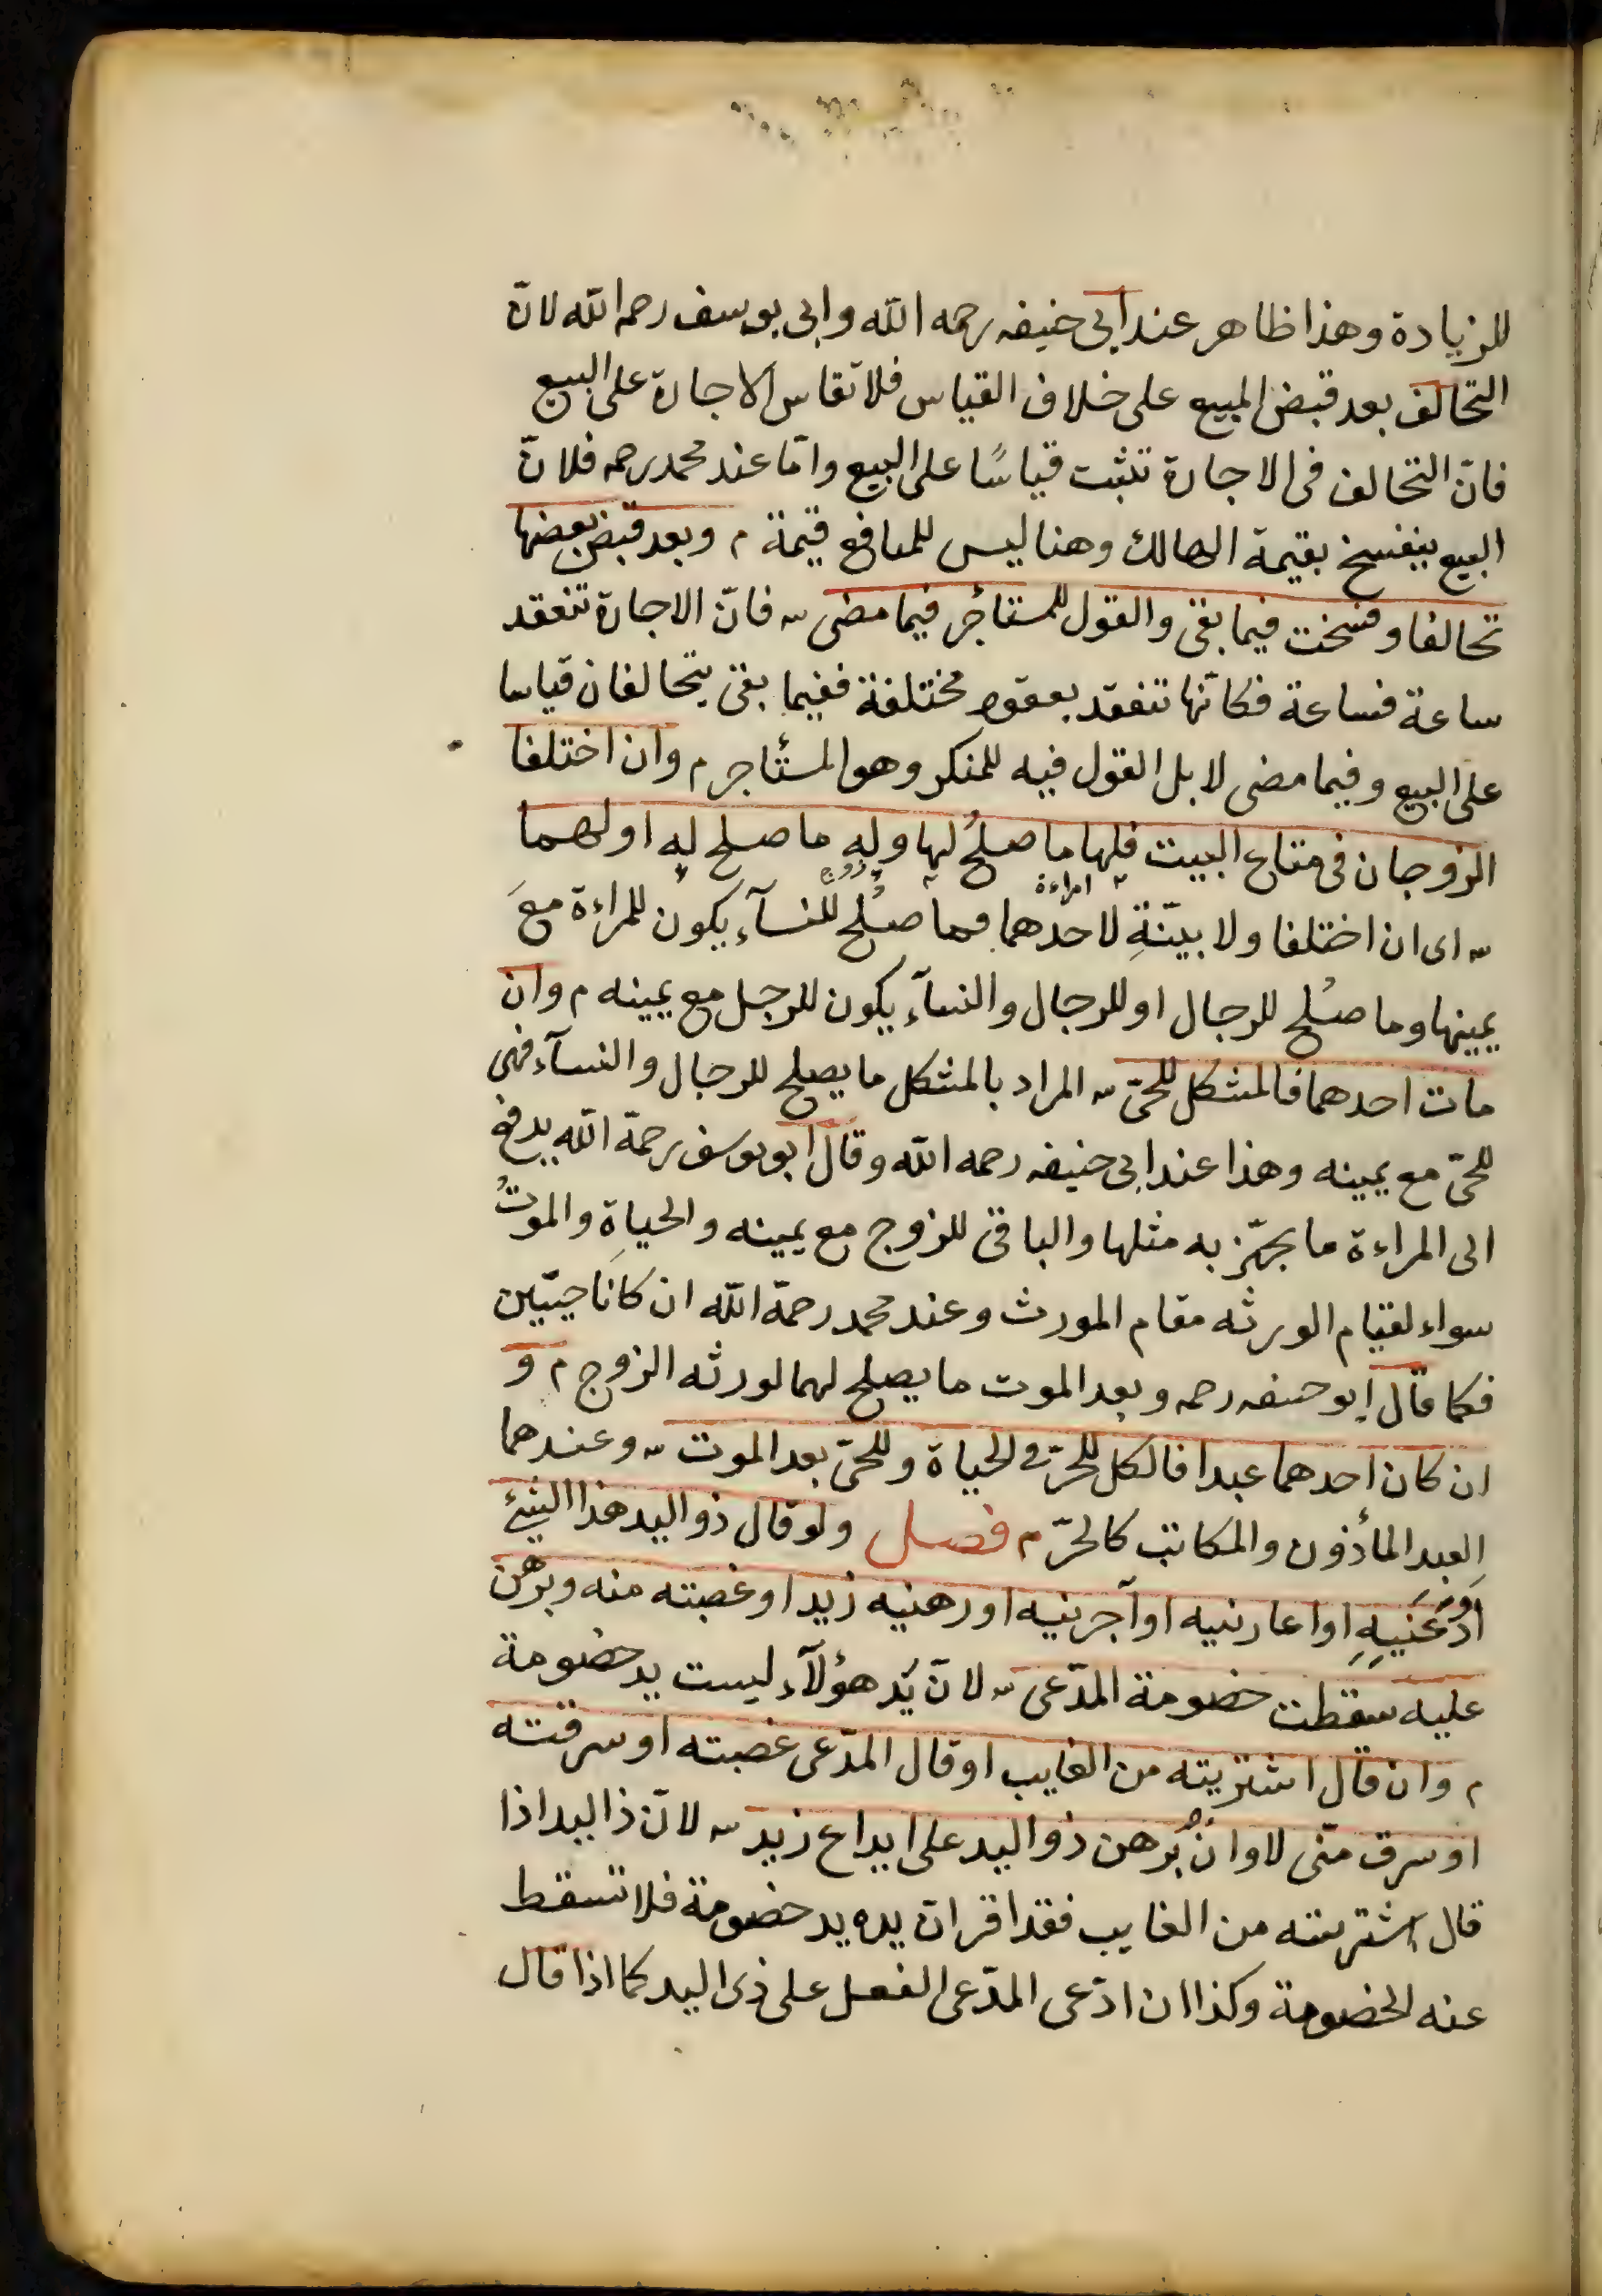 للزيادة وهذا ظاهر عند ابى حنيفه رحمه الله وابى يوسف رحمه الله لانّ
التحالف بعد قبض المبيع على خلاف القياس فلا تقاس الاجارة على البيع
فانّ التحالف فى الاجارة تثبت قياسًا على البيع وامّا عند محمد رحمه فلانّ
البيع ينفسخ بقيمة الهالك وهنا ليس للمنافع قيمة م وبعد قبض بعضها
تحالفا وفسخت فيما بقى والقول للمستأجر فيما مضى ش فانّ الاجارة تنعقد
ساعة فساعة فكانّها تنعقد بعقود مختلفة ففيما بقى يتحالفان قياسا
على البيع وفيما مضى لا بل القول فيه للمنكر وهو المستأجر م وان اختلفا
الزوجان فى متاع البيت فلها ما صلحُ لها وله ما صلح له او لهما
امراءة زوج
ش اى ان اختلفا ولا بيّنةِ لاحدهما فما صلُح للنسآء يكون للمراءة معَ
يمينها وما صلُح للرجال او للرجال والنسآء يكون للرجل مع يمينه م وان
مات احدهما فالمشكل للحىّ ش المراد بالمشكل ما يصلح للرجال والنسآء فهى
للحىّ مع يمينه وهذا عند ابى حنيفه رحمه الله وقال ابو يوسف رحمة الله يدفع
الى المراءة ما يجهّز به مثلها والباقى للزوج مع يمينه والحياةِ والموتُ
سواء لقيام الورثه مقام المورث وعند محمد رحمة الله ان كانا حيّين
فكما قال ابو حنيفه رحمه وبعد الموت ما يصلح لهما لورثه الزوج م و
ان كان احدهما عبدا فالكل للحرّ فى الحياة وللحىّ بعد الموت ش وعندهما
العبد المأذون والمكاتب كالحرّ م فصل ولو قال ذو اليد هذا الشئ
اَودَعَنيِهِ او اعارنيه او آجرنيه او رهنيه زيد او غصبته منه وبرهن
عليه سقطت خصومة المدّعى ش لانّ يَد هؤلآء ليست يد خصومة
م وان قال اشتريته من الغايب او قال المدّعى غصبته او سرقته
او سرق منّى لا وان بُرهن ذو اليد على ايداع زيد ش لانّ ذا اليد اذا
قال اشتريته من الغايب فقد اقر ان يده يد خصومة فلا تسقط
عنه الخصومة وكذا ان ادّعى المدّعى الفعل على ذى اليد كما اذا قال